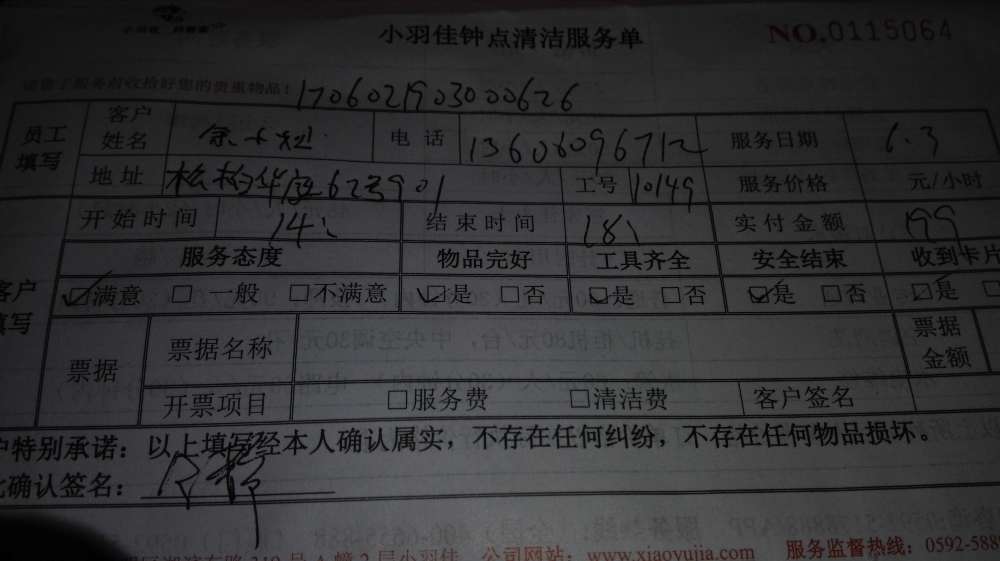 小羽佳钟点清洁服务单 NO.0115064
请您于服务前收拾好您的贵重物品!
1706021903000626
员工填写 客户姓名 电话 13606096712 服务日期 6.3
地址 松柏华庭623901 工号 10149 服务价格 元/小时
开始时间 14: 结束时间 18: 实付金额 199
服务态度 物品完好 工具齐全 安全结束 收到卡片
客户填写 ☑满意 □一般 □不满意 ☑是 □否 ☑是 □否 ☑是 □否 ☑是 □
票据 票据名称 票据金额
开票项目 □服务费 □清洁费 客户签名
户特别承诺：以上填写经本人确认属实，不存在任何纠纷，不存在任何物品损坏。
此确认签名：
2层小羽佳 公司网站：www.xiaoyujia.com 服务监督热线：0592-5888